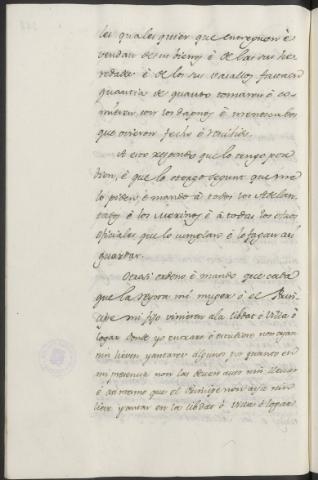 les quales quier que entreguen è
vendan de sus bienes è de las sus he
redades è de los sus vasallos fasta en
quantia de quanto tomaren è co
mieren con los dapños è menoscabos
que ovieren fecho è rescibido.
A esto respondo que lo tengo por
bien, è que lo otorgo segunt que me
lo piden, è mando à todos los Adelan
tados è los Merinos è à todos los otros
oficiales que lo cumplan è lo fagan asi
guardar.
Otrosi ordeno è mando que cada
que la Reyna mi muger ò el Prin
cipe mi fijo vinieren à la cibdat ò Villa ò
logar donde yo entrare ò estudiere non ayan
nin lieven yantares algunos pues quanto en
mi presencia non las deven aver nin llevar
è asimismo que el Principe non aya nin
lieve yantar en la cibdat ò Villa ò logar